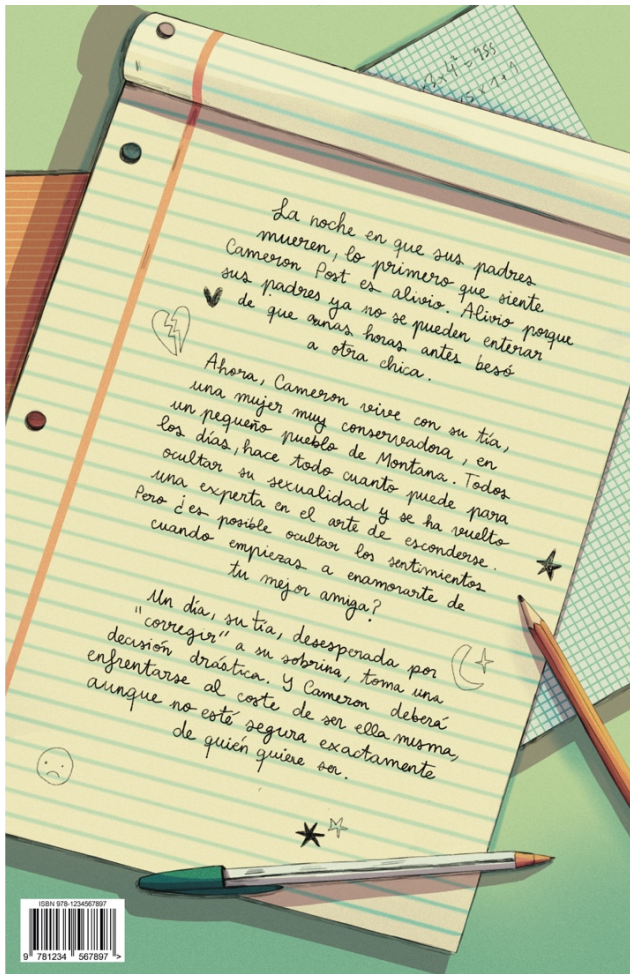 x3x4² = 955
x5 x 1+1
La noche en que sus padres
mueren, lo primero que siente
Cameron Post es alivio. Alivio porque
sus padres ya no se pueden enterar
de que unas horas antes besó
a otra chica.
Ahora, Cameron vive con su tía,
una mujer muy conservadora, en
un pequeño pueblo de Montana. Todos
los días, hace todo cuanto puede para
ocultar su sexualidad y se ha vuelto
una experta en el arte de esconderse.
Pero ¿es posible ocultar los sentimientos
cuando empiezas a enamorarte de
tu mejor amiga?
Un día, su tía, desesperada por
"corregir" a su sobrina, toma una
decisión drástica. Y Cameron deberá
enfrentarse al coste de ser ella misma,
aunque no esté segura exactamente
de quién quiere ser.
ISBN 978-1234567897
9 781234 567897 >